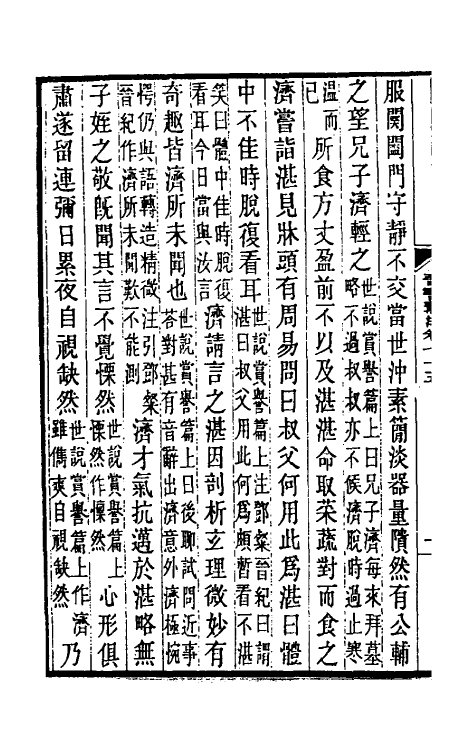 服闋闔門守靜不交當世沖素簡淡器量隤然有公輔
之望兄子濟輕之世說賞譽篇上曰兄子濟每來拜墓略不過叔叔亦不候濟脫時過止寒
溫而已所食方丈盈前不以及湛湛命取菜蔬對而食之
濟嘗詣湛見牀頭有周易問曰叔父何用此爲湛曰體
中不佳時脫復看耳世說賞譽篇上注鄧粲晉紀曰謂湛曰叔父用此何爲頗暫看不湛
笑曰體中佳時脫復看耳今日當與汝言濟請言之湛因剖析玄理微妙有
奇趣皆濟所未聞也世說賞譽篇上曰後聊試問近事答對甚有音辭出濟意外濟極惋
愕仍與語轉造精微注引鄧粲晉紀作濟所未聞歎不能測濟才氣抗邁於湛略無
子姪之敬旣聞其言不覺慄然世說賞譽篇上慄然作懔然心形俱
肅遂留連彌日累夜自視缺然世說賞譽篇上作濟雖儁爽自視缺然乃